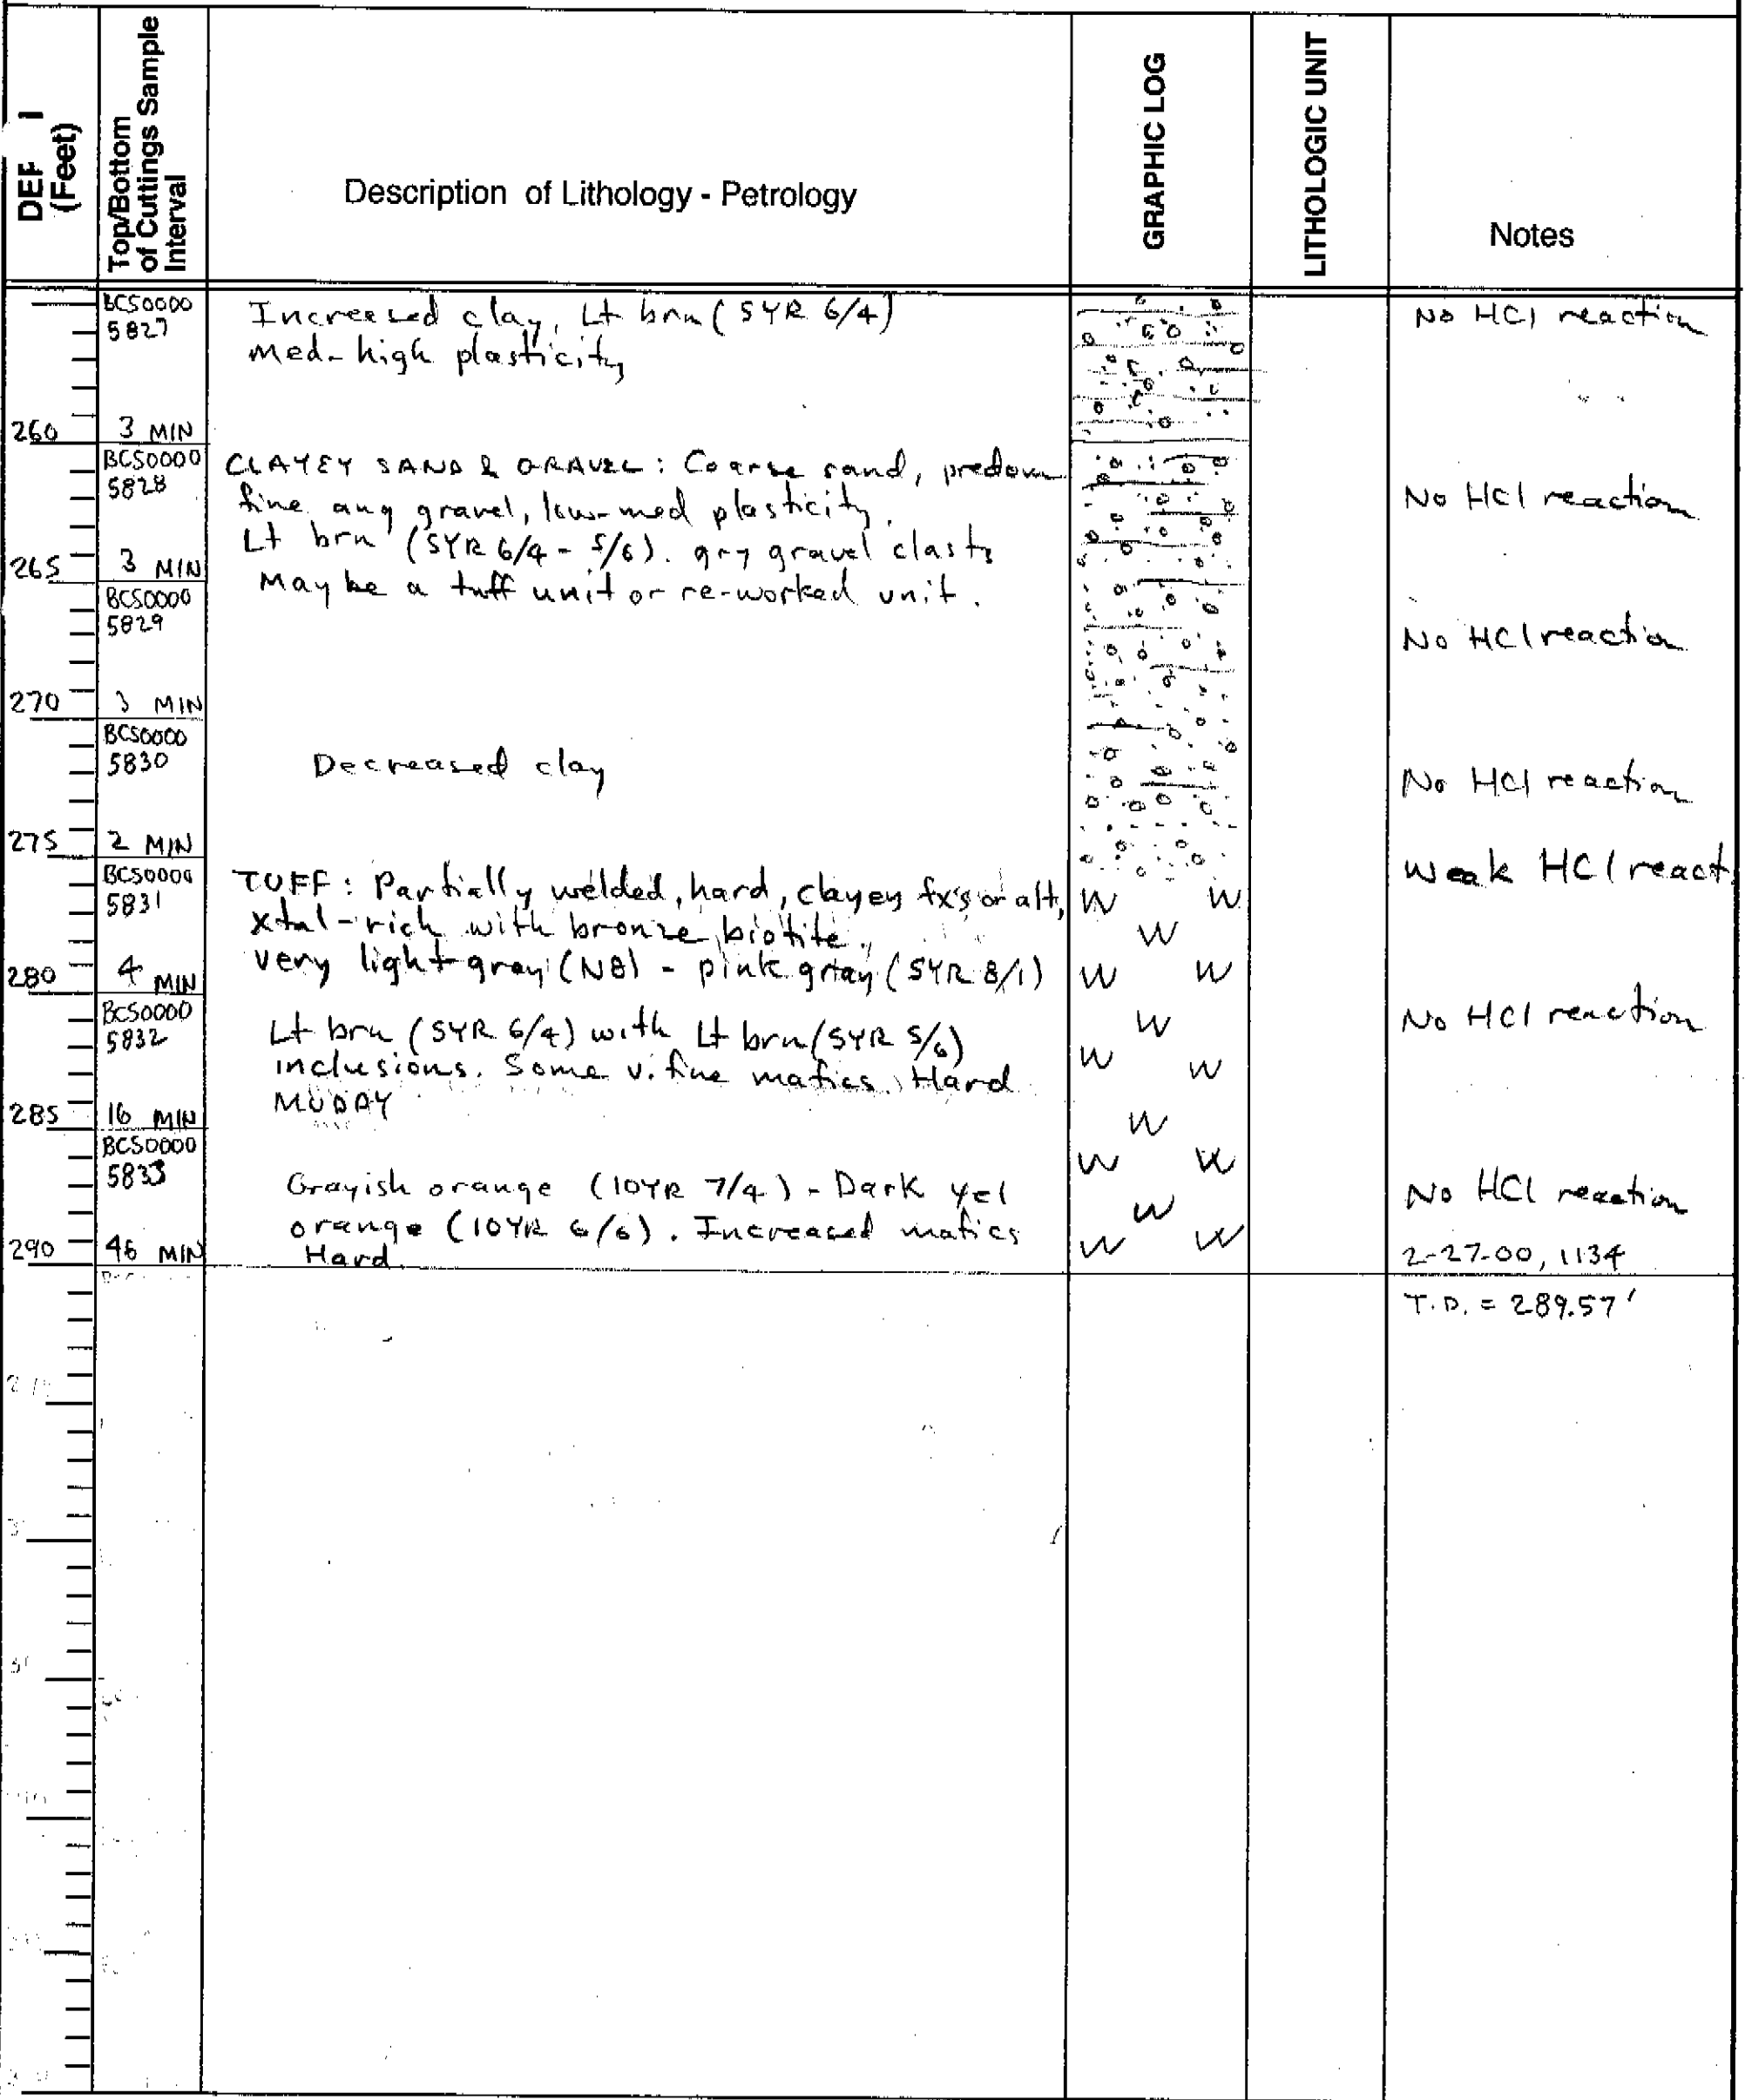 (Feet)
Top/Bottom
of Cuttings Sample
Interval
Description of Lithology - Petrology
GRAPHIC LOG
LITHOLOGIC UNIT
Notes
BCS0000
5827
Increased clay, Lt brn (5YR 6/4)
med-high plasticity
No HCl reaction
260
3 MIN
BCS0000
5828
CLAYEY SAND & GRAVEL: Coarse sand, predom
fine ang gravel, low-med plasticity.
Lt brn (5YR 6/4 - 5/6). gry gravel clasts
No HCl reaction
265
3 MIN
May be a tuff unit or re-worked unit.
BCS0000
5829
No HCl reaction
270
3 MIN
BCS0000
5830
Decreased clay
No HCl reaction
275
2 MIN
BCS0000
5831
TUFF: Partially welded, hard, clayey fx's or alt,
xtal-rich with bronze biotite.
very light gray (N8) - pink gray (5YR 8/1)
Weak HCl react
W W
W
W W
280
4 MIN
BCS0000
5832
Lt brn (5YR 6/4) with Lt brn (5YR 5/6)
inclusions. Some v. fine mafics. Hard
MUDDY
No HCl reaction
W
W W
W
285
16 MIN
BCS0000
5833
Grayish orange (10YR 7/4) - Dark yel
orange (10YR 6/6). Increased mafics
Hard
W W
W
W W
No HCl reaction
290
46 MIN
2-27-00, 1134
T.D. = 289.57'